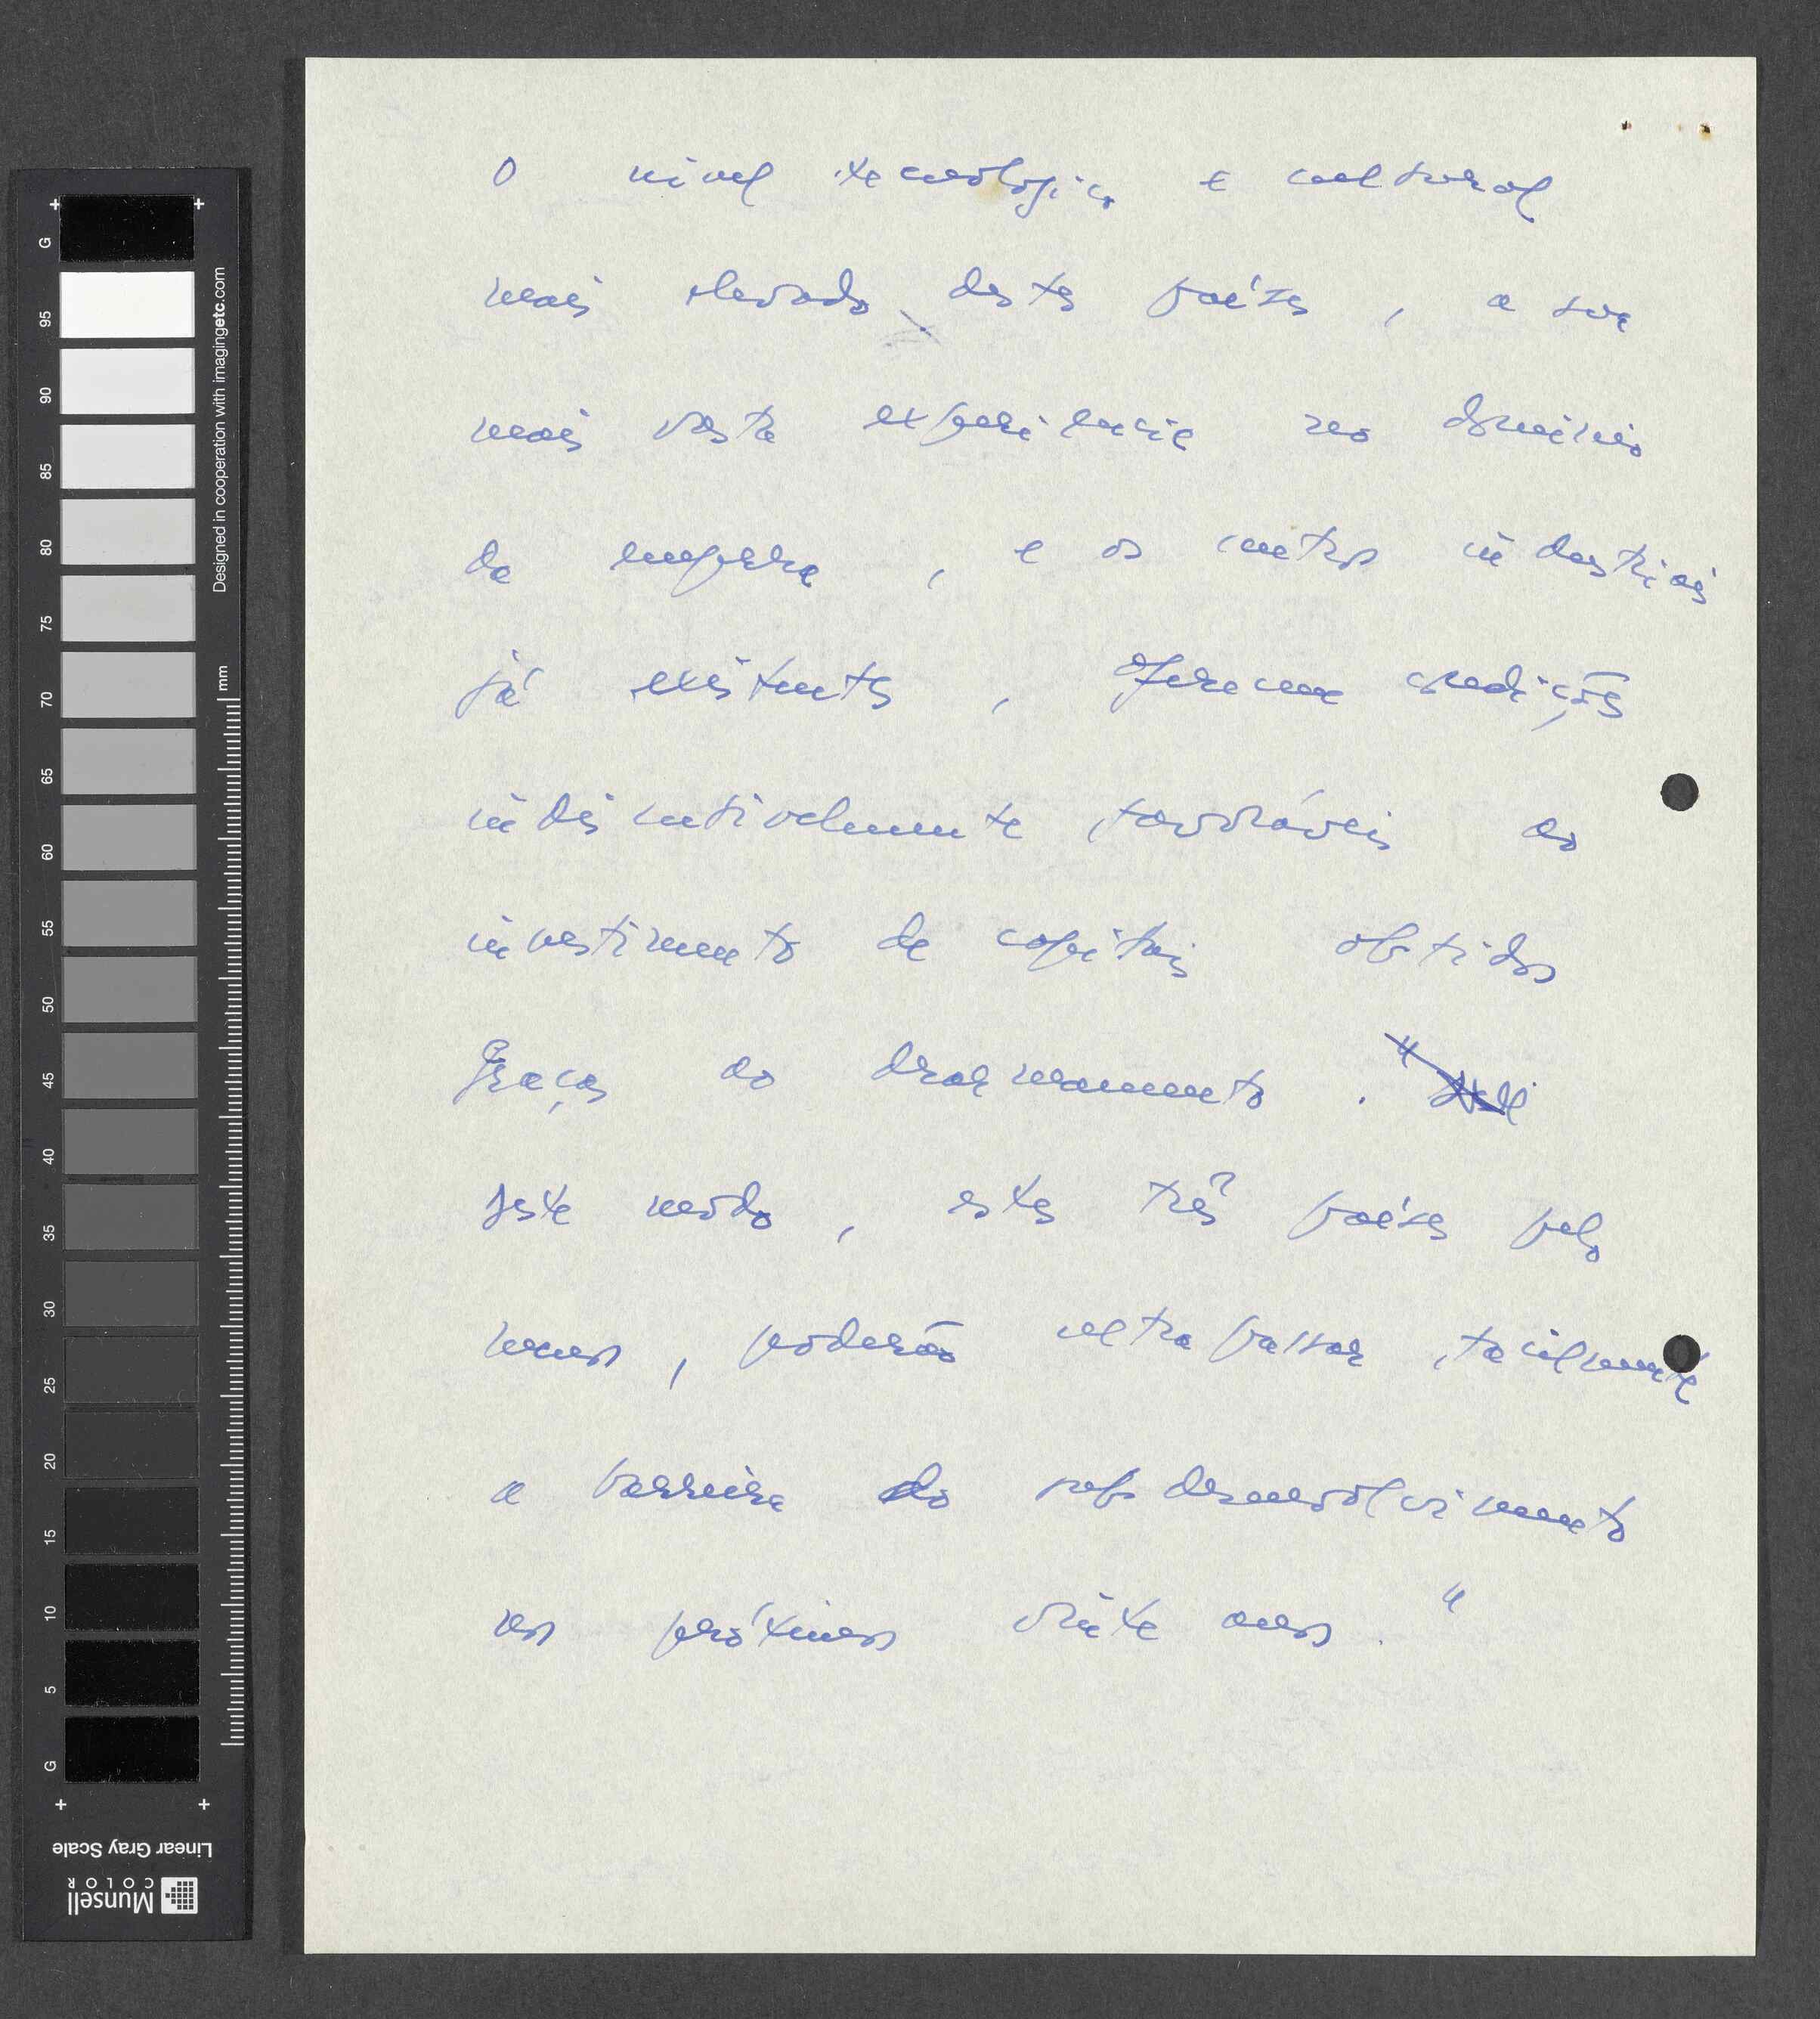 O nivel tecnologico e cultural
mais elevado destes países, a sua
mais vasta experiencia no dominio
da empresa, e os centros industriais
já existentes, oferecem condições
indiscutivelmente favoráveis ao
investimento de capitais obtidos
graças ao desarmamento. "
Deste modo, estes três países pelo
menos, poderão ultrapassar facilmente
a barreira do subdesenvolvimento
nos próximos vinte anos."
G
95
90
85
80
75
70
65
60
55
50
45
40
35
30
25
20
15
10
5
G
Designed in cooperation with imagingetc.com
mm
Linear Gray Scale
Munsell
COLOR